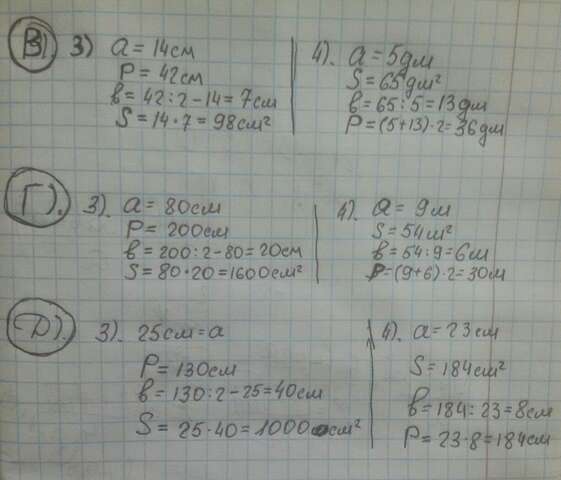 В). 3) a = 14см
P = 42см
b = 42:2-14 = 7см
S = 14·7 = 98см²
4). a = 5дм
S = 65дм²
b = 65:5 = 13дм
P = (5+13)·2 = 36дм
Г). 3). a = 80см
P = 200см
b = 200:2-80 = 20см
S = 80·20 = 1600см²
4). a = 9м
S = 54м²
b = 54:9 = 6м
P = (9+6)·2 = 30м
Д). 3). 25см = a
P = 130см
b = 130:2-25 = 40см
S = 25·40 = 1000 см²
4). a = 23см
S = 184см²
b = 184:23 = 8см
P = 23·8 = 184см